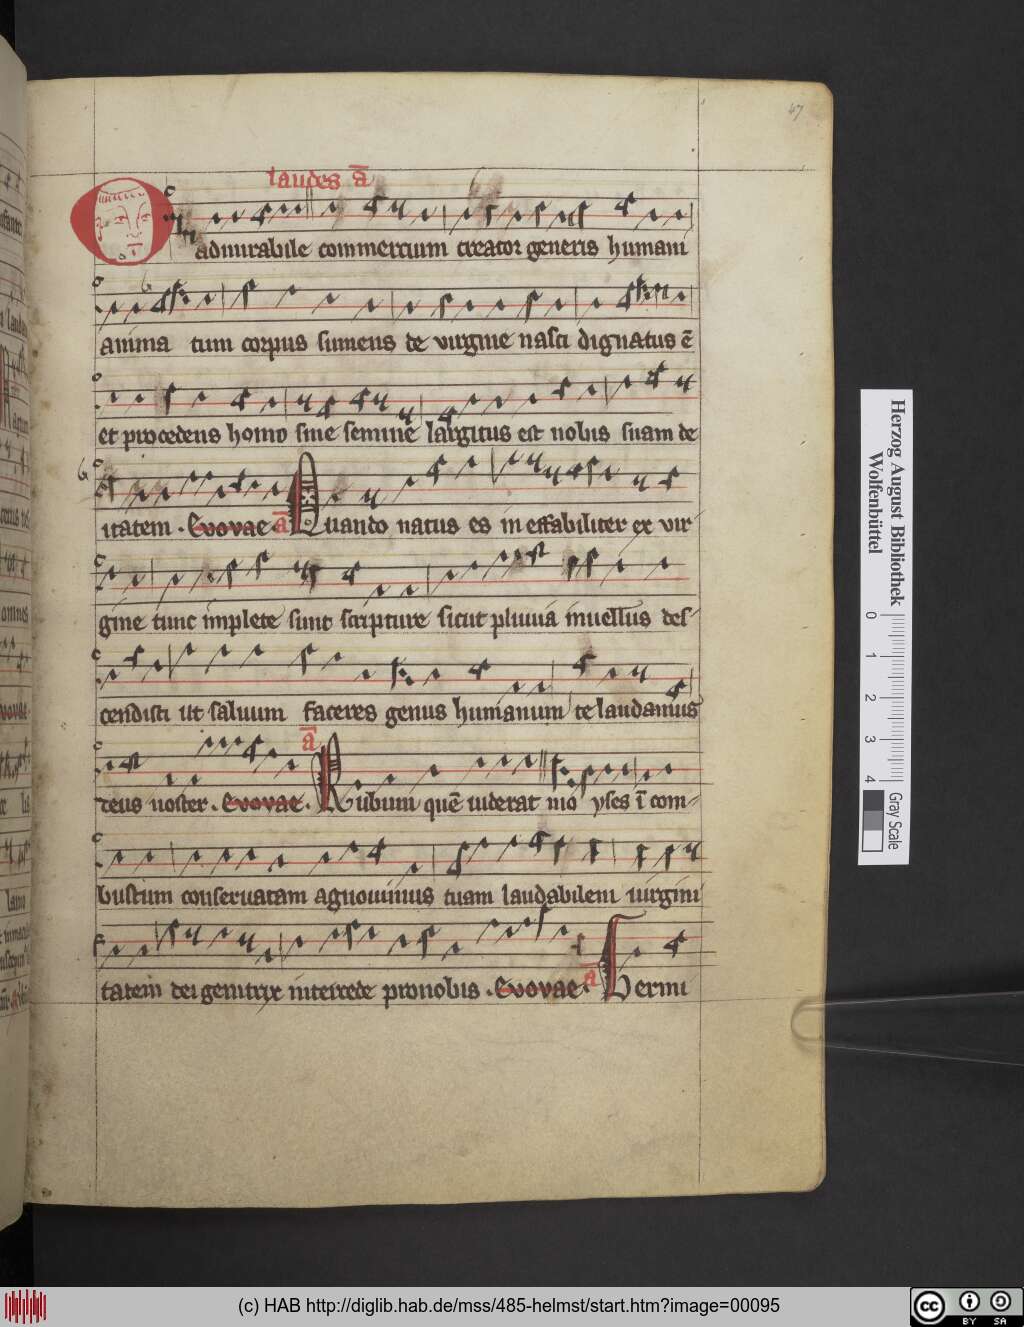 47
laudes ā
O admirabile commercium creator generis humani
anima tum corpus sumens de virgine nasci dignatus ē
et procedens homo sine semine largitus est nobis suam de
itatem . Evovae . ā Quando natus es in effabiliter ex vir
gine tunc implete sunt scripture sicut pluuia inuellus des-
cendisti ut saluum faceres genus humanum te laudamus
deus noster . Evovae . ā Rubum quē uiderat mo yses ī com-
bustum conseruatam agnouimus tuam laudabilem uirgini
tatem dei genitrix intercede pronobis . Evovae . ā Germi
Herzog August Bibliothek
Wolfenbüttel
0 1 2 3 4 Gray Scale
(c) HAB http://diglib.hab.de/mss/485-helmst/start.htm?image=00095
cc BY SA